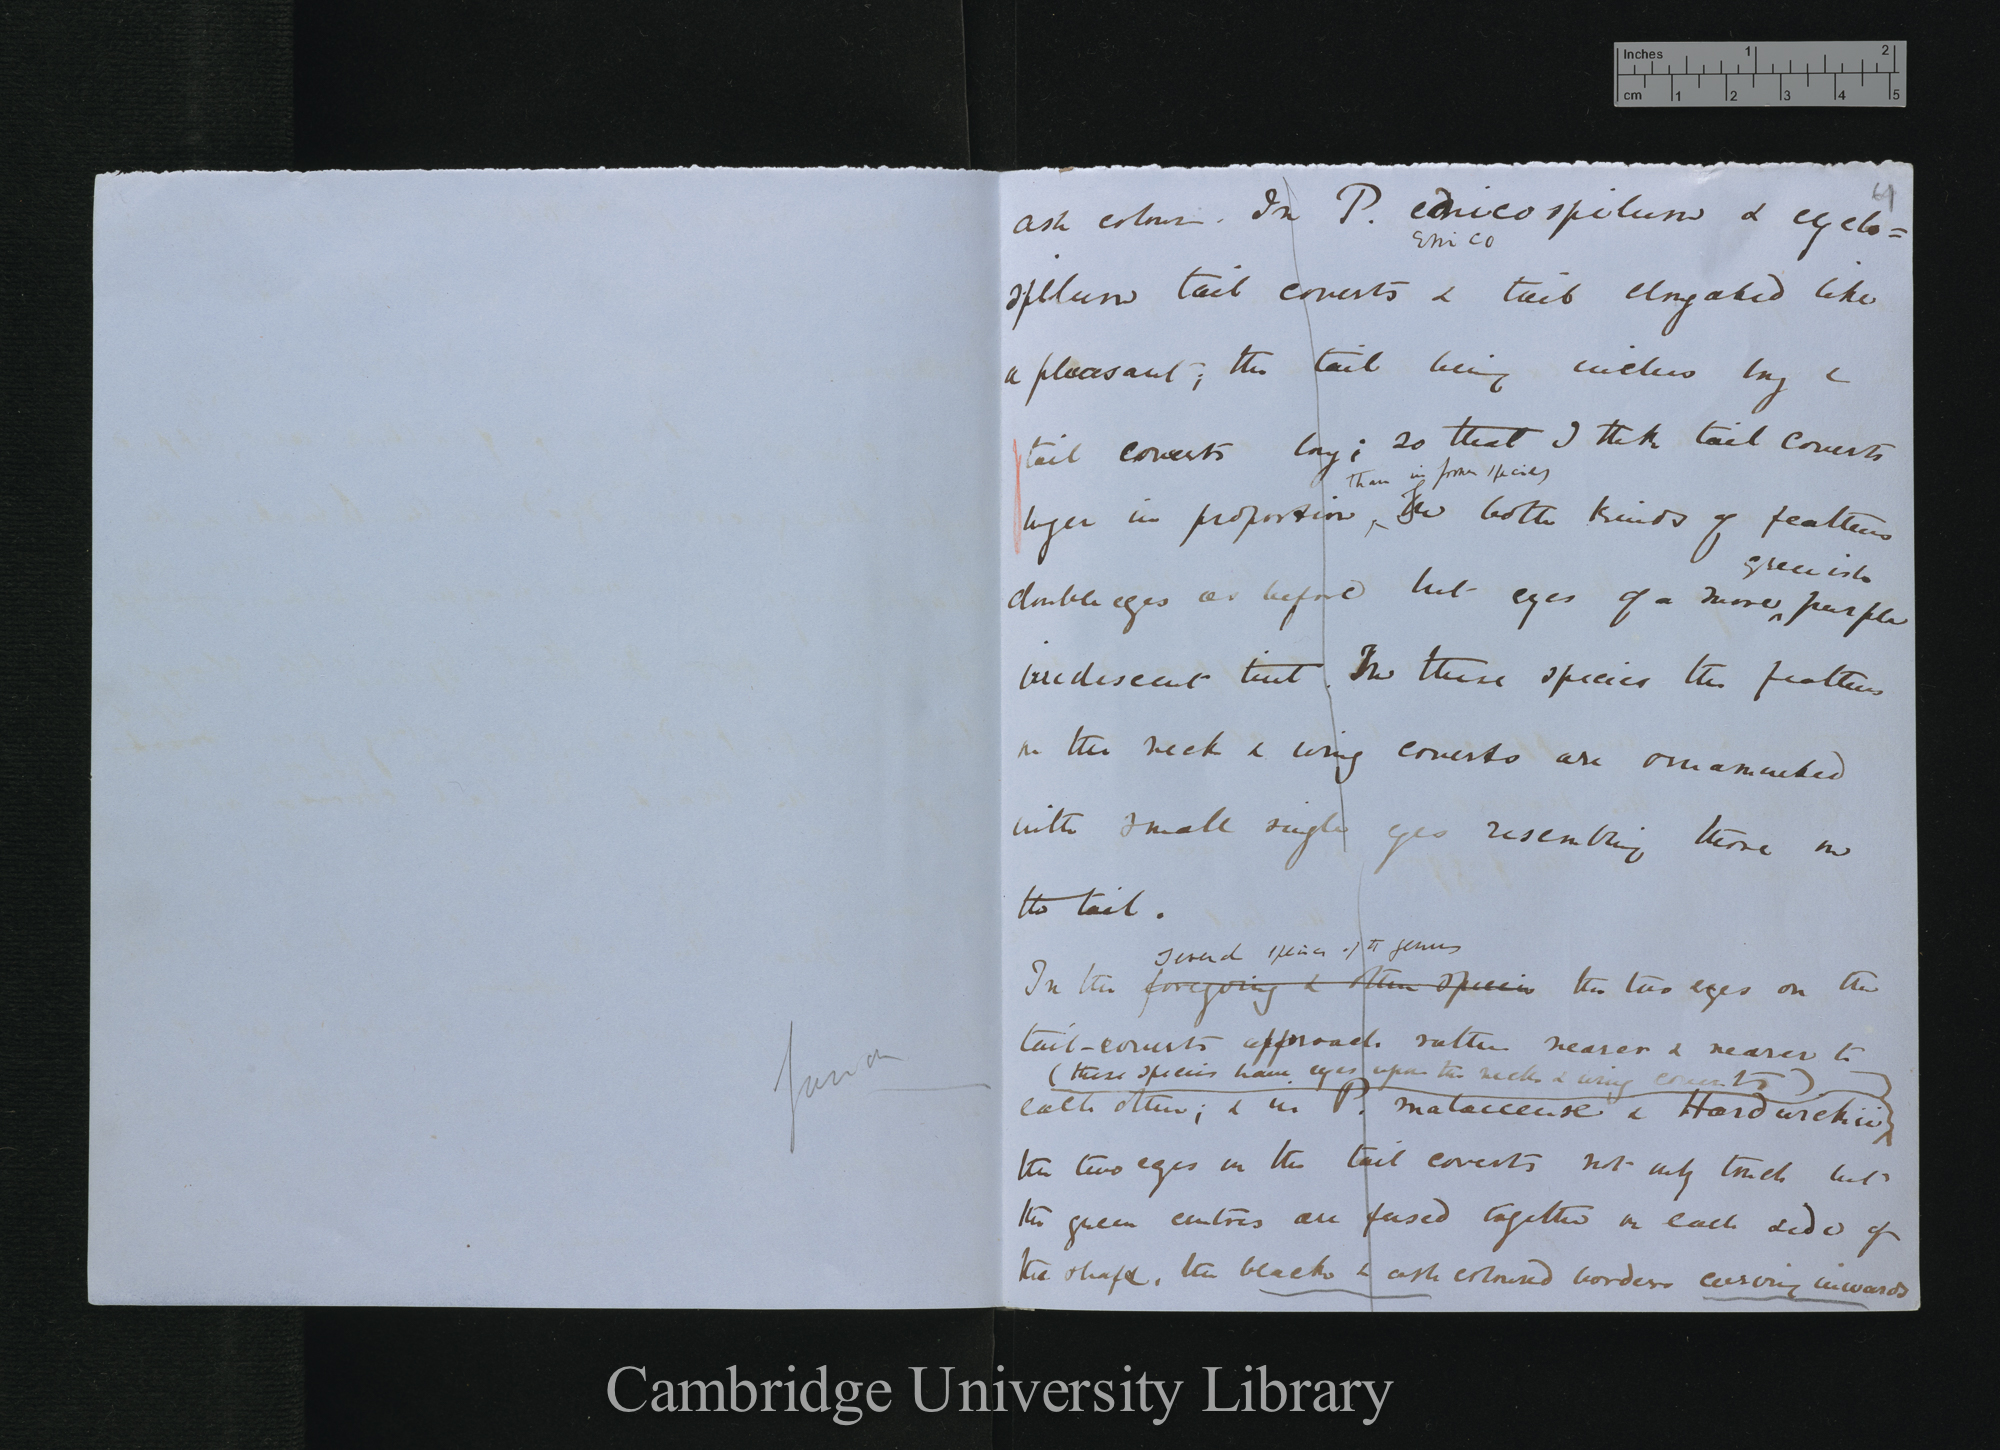 Inches 1 2
cm 1 2 3 4 5
4
ash colour. In P. enicospilum & cyclo=
Enico
spilum tail coverts & tail elongated like
a pheasant; the tail being inches long &
tail coverts long; so that I think tail coverts
than in former species
longer in proportion, The both kinds of feathers
greenish
double eyes as before but eyes of a more purple
iridescent tint. In these species the feathers
on the neck & wing coverts are ornamented
with small single eyes resembling those on
the tail.
several species of the genus
In the foregoing & other species the two eyes on the
tail-coverts approach rather nearer & nearer to
(these species have eyes upon the neck & wing coverts)
each other; & in P. malaccense & Hardwickii
the two eyes on the tail coverts not only touch but
the green centres are fused together on each side of
the shaft, the black & ash coloured borders curving inwards
Cambridge University Library